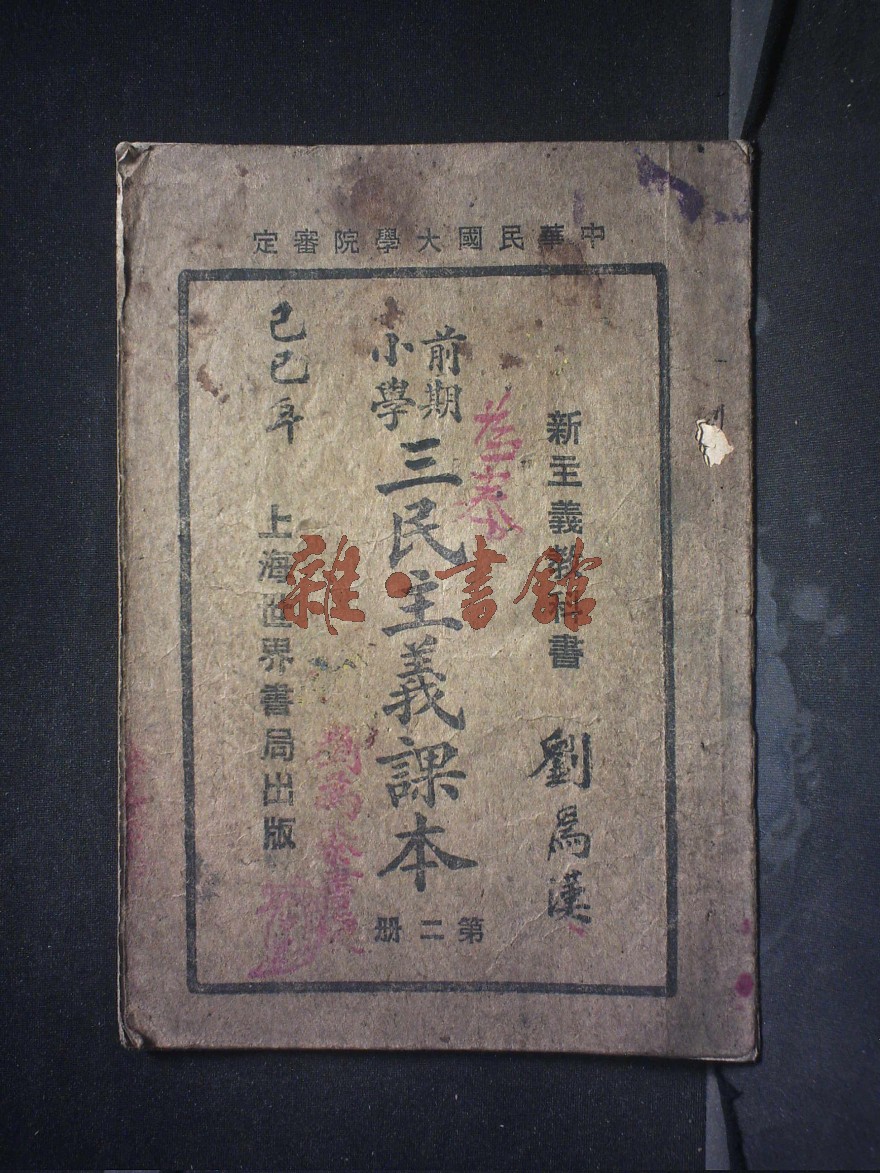 中華民國大學院審定
新主義教科書
劉爲漢
前期
小學
三民主義課本
第二册
己巳年
上海世界書局出版
雜·書館